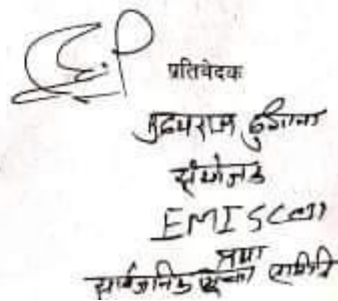 प्रतिवेदक
उदयराज ढुंगाना
संयोजक
EMIS
तथा
सार्वजनिक समिति